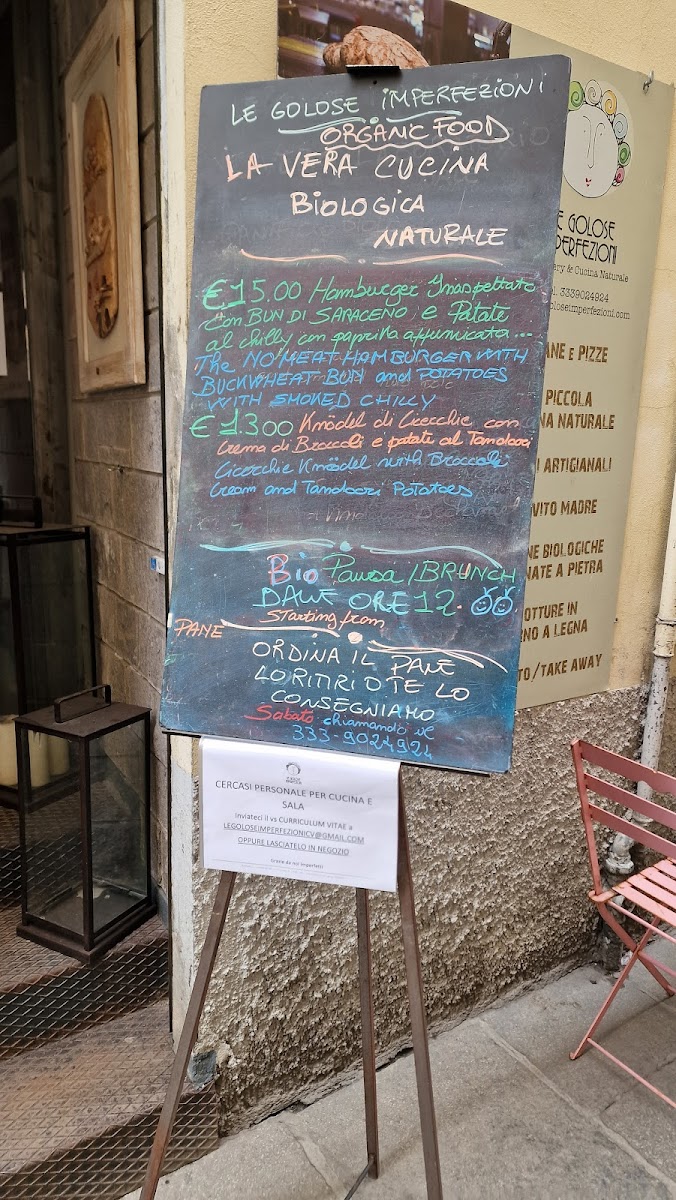 LE GOLOSE IMPERFEZIONI
ORGANIC FOOD
LA VERA CUCINA
BIOLOGICA
NATURALE
€15.00 Hamburger Inaspettato
con BUN DI SARACENO e Patate
al chilly con paprika affumicata...
The NO MEAT HAMBURGER WITH
BUCKWHEAT BUN and POTATOES
WITH SMOKED CHILLY
€13.00 Knödel di Cicerchie con
Crema di Broccoli e patate al Tandoori
Cicerchie Knödel with Broccoli
Cream and Tandoori Potatoes
Bio Pausa/BRUNCH
DALLE ORE 12.00
Starting from
PANE
ORDINA IL PANE
LO RITIRI O TE LO
CONSEGNIAMO
Sabato chiamando il
333-9024924
CERCASI PERSONALE PER CUCINA E
SALA
Inviateci il vs CURRICULUM VITAE a
LEGOLOSEIMPERFEZIONICV@GMAIL.COM
OPPURE LASCIATELO IN NEGOZIO
E GOLOSE
PERFEZIONI
ery & Cucina Naturale
l. 3339024924
oloseimperfezioni.com
ANE e PIZZE
PICCOLA
NA NATURALE
I ARTIGIANALI
VITO MADRE
NE BIOLOGICHE
NATE A PIETRA
OTTURE IN
RNO A LEGNA
TO/TAKE AWAY